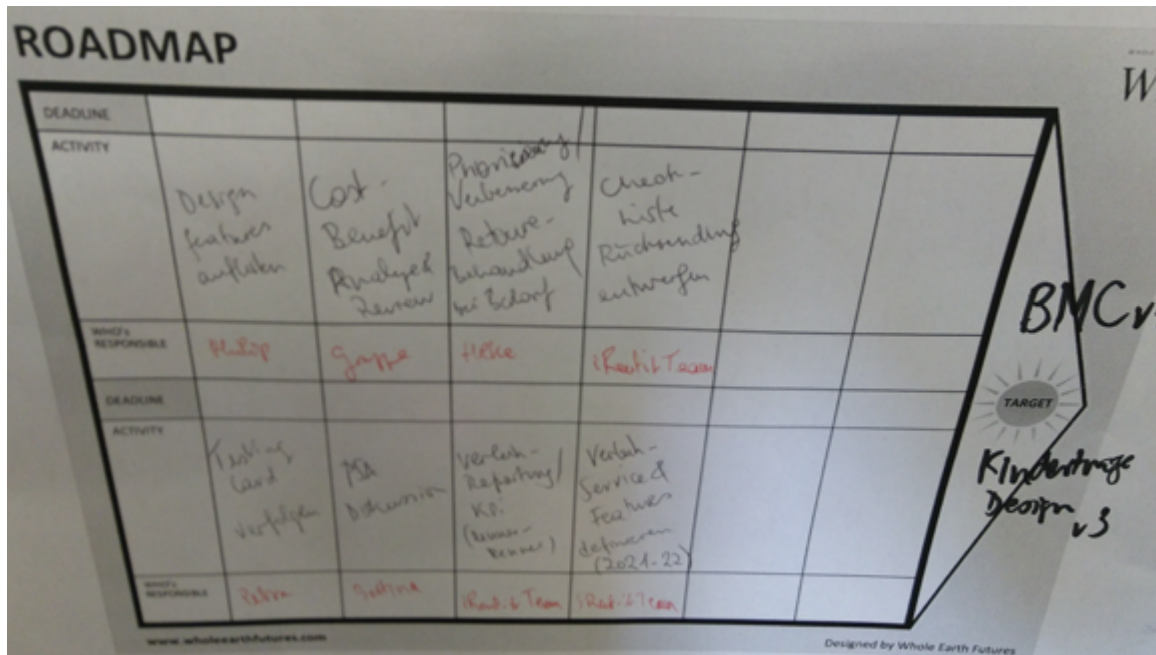 ROADMAP
W
DEADLINE
ACTIVITY
Design
features
Cost-
Benefit
Analyse &
Review
Verbesserung
Retoure-
behandlung
bei Bedarf
Check-
liste
Rücksendung
entwerfen
WHO's
RESPONSIBLE
Philip
Gruppe
Heike
iRentit Team
DEADLINE
ACTIVITY
Testing
Card
verfolgen
Diskussion
Verleih-
Reporting/
KPI
Verleih-
Service &
Features
definieren
(2021-22)
WHO's
RESPONSIBLE
Petra
iRentit Team
iRentit Team
BMC
TARGET
Kindertrage
Design
v3
www.wholeearthfutures.com
Designed by Whole Earth Futures